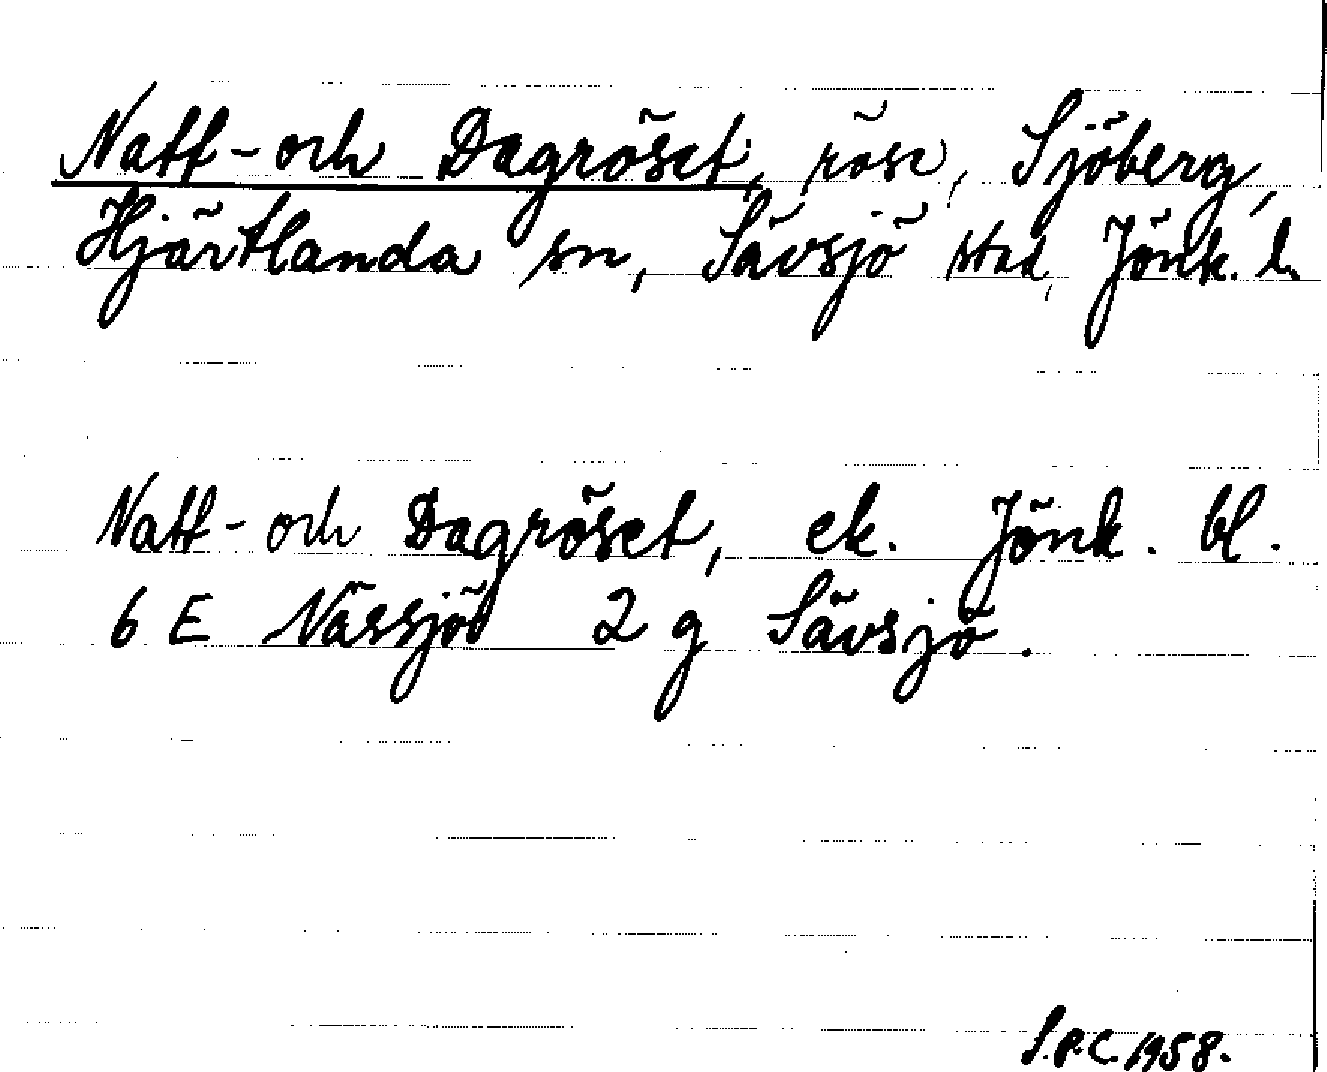 Natt- och Dagröset, röse, Sjöberg,
Hjärtlanda sn, Sävsjö stad, Jönk. l.
Natt- och Dagröset, ek. Jönk. bl.
6 E Nässjö 2 g Sävsjö.
S.P.C. 1958.